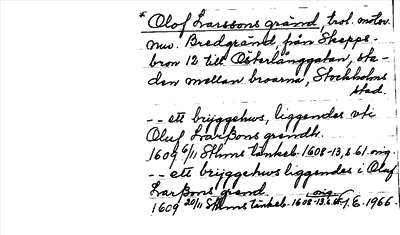 * Olof Larssons gränd, trol. motsv.
nuv. Bredgränd, från Skepps-
bron 12 till Österlånggatan, sta-
den mellan broarna, Stockholms
stad.
-- ett bryggehws, liggendes uti
Oluf Larßons grendh.
1609 6/11 Sthlms tänkeb. 1608-13, s. 61. orig.
-- ett bryggehws liggendes i Oluf
Larßons grend. orig.
1609 20/11 Sthlms tänkeb. 1608-13, s. E. 1966.